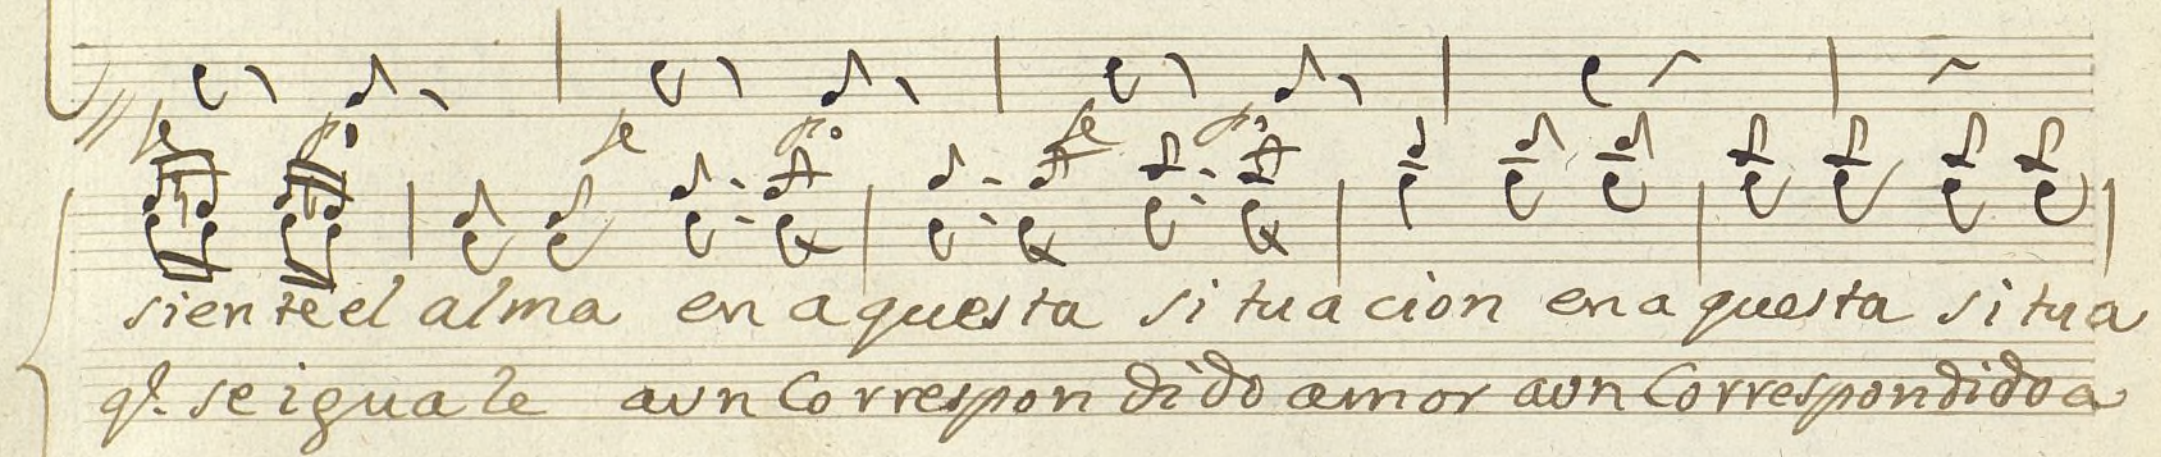 fe p.o fe p.o fe p.o
siente el alma en aquesta situacion en aquesta situa
q.e se iguale aun Correspondido amor aun Correspondido a